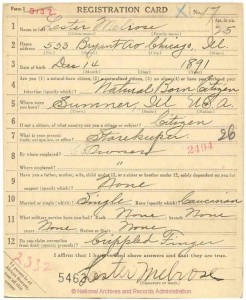 Form 1
REGISTRATION CARD
No. 17
1 Name in full Lester Melrose
25
2 Home address 533 Bryant Av Chicago, Ill.
3 Date of birth Dec 14 1891
4 Are you (1) a natural-born citizen, (2) a naturalized citizen, (3) an alien,
Natural Born Citizen
5 Where were you born? Sumner, Ill U.S.A.
6 Citizen
7 What is your present trade, occupation, or office? Storekeeper 26
8 By whom employed?
2494
Where employed? "
9 Have you a father, mother, wife, child under 12, or a sister or brother under 12, solely dependent on you for support (specify which)?
None
10 Married or single (which)? Single Race (specify which)? Caucasian
11 What military service have you had? Rank None branch None
years None Nation or State None
12 Do you claim exemption from draft (specify grounds)? Crippled Finger
I affirm that I have verified above answers and that they are true.
2332
546 Lester Melrose
© National Archives and Records Administration